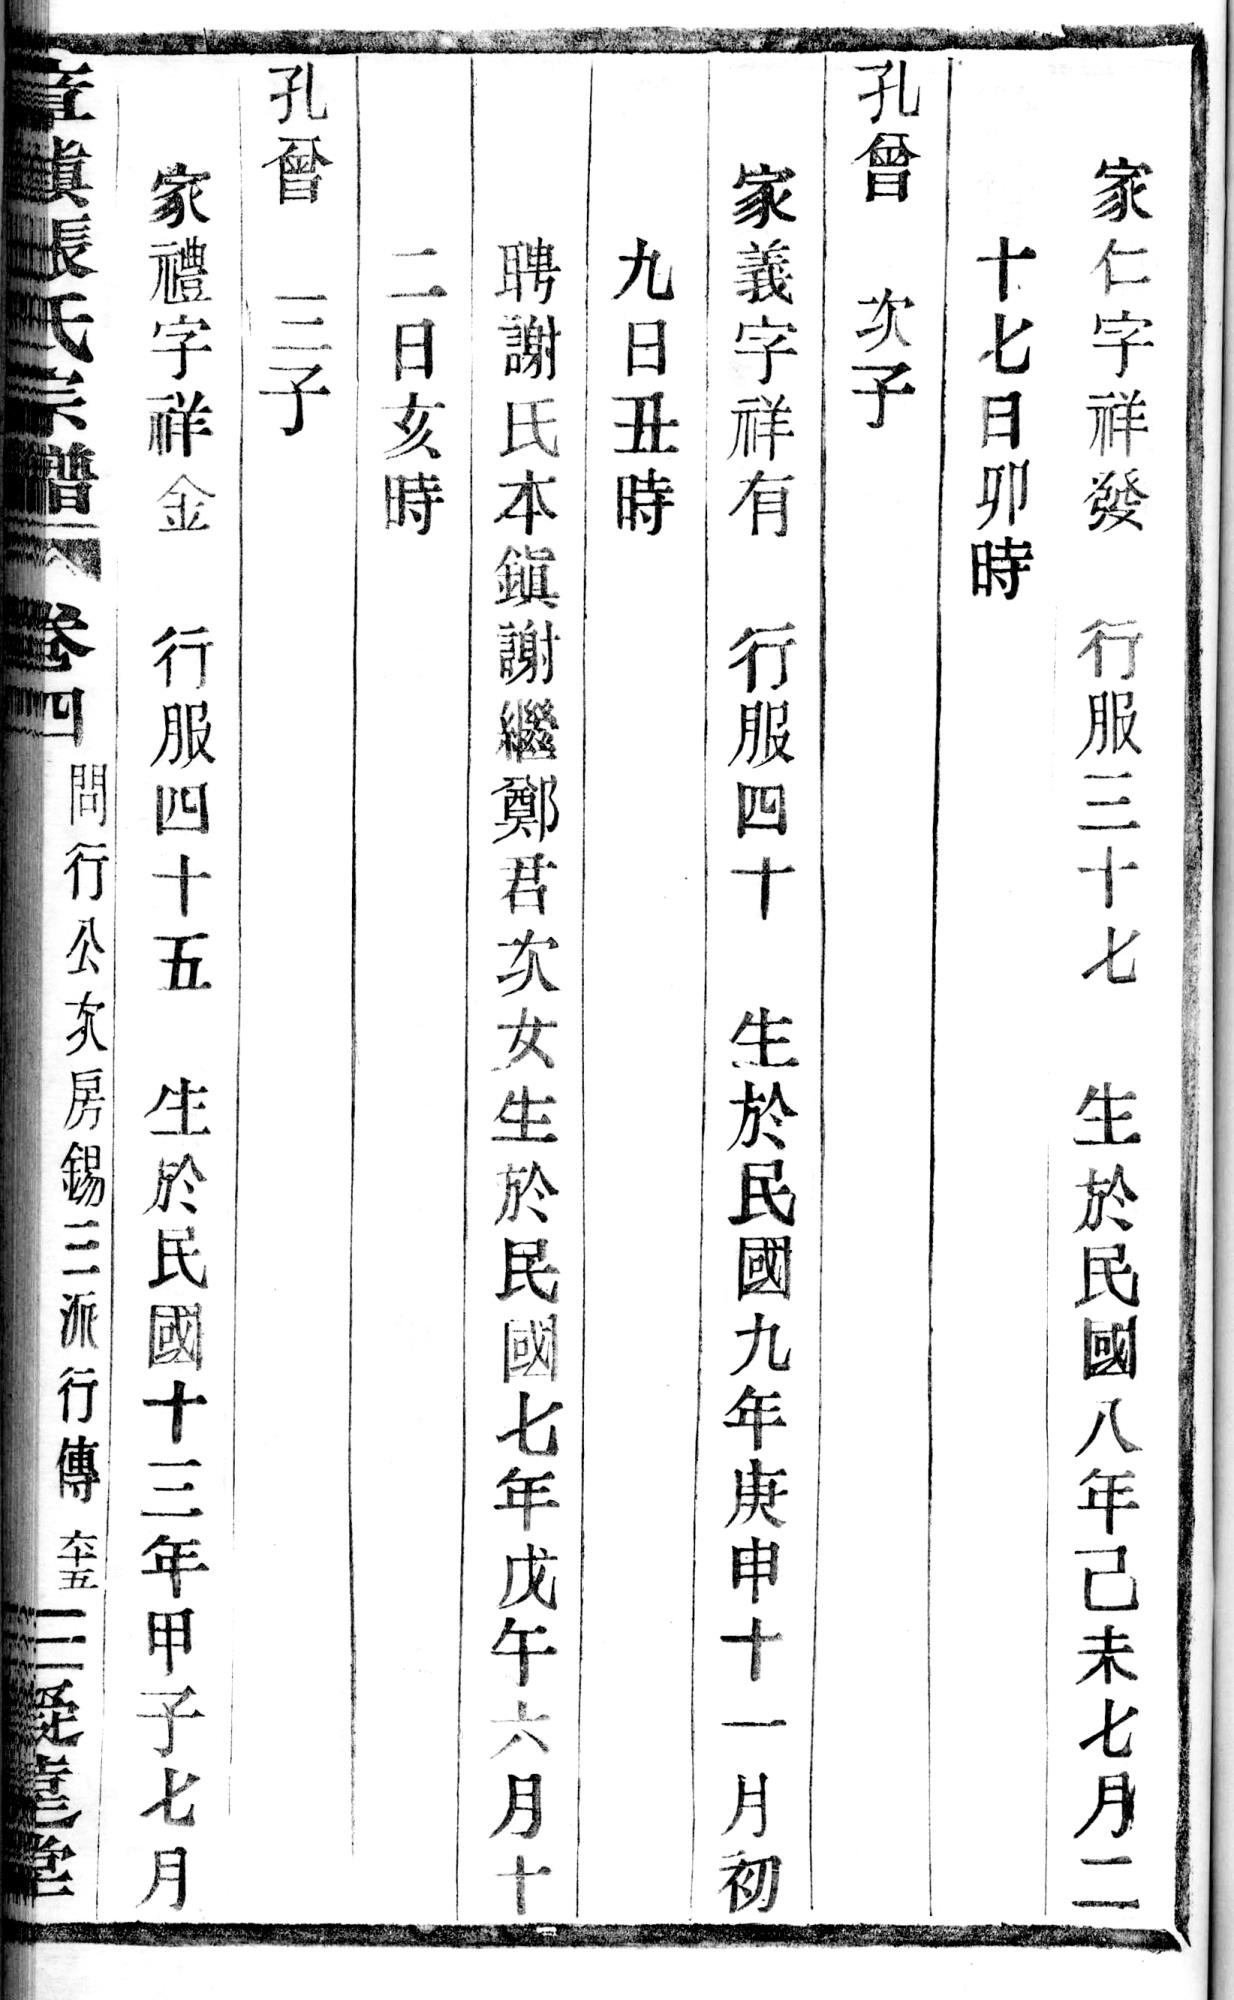 家仁字祥發　行服三十七　生於民國八年己未七月二
十七日卯時
孔曾　次子
家義字祥有　行服四十　生於民國九年庚申十一月初
九日丑時
聘謝氏本鎭謝繼鄭君次女生於民國七年戊午六月十
二日亥時
孔曾　三子
家禮字祥金　行服四十五　生於民國十三年甲子七月
張氏宗譜　卷四　問行公次房錫三派行傳　六十五　三　堂